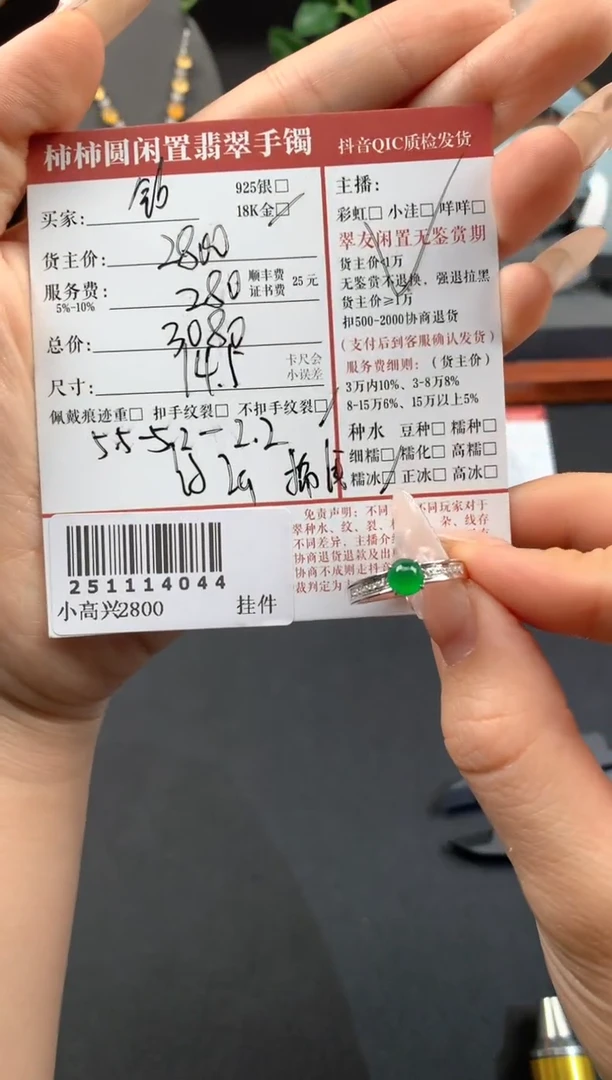 柿柿圆闲置翡翠手镯 抖音QIC质检发货
925银□
18K金□
买家:
货主价: 2800
服务费: 280
5%-10%
顺丰费
证书费 25元
总价: 3080
尺寸: 14.5
卡尺会
小误差
佩戴痕迹重□ 扣手纹裂□ 不扣手纹裂□
5.5-5.2-2.2
主播:
彩虹□ 小洼□ 咩咩□
翠友闲置无鉴赏期
货主价<1万
无鉴赏不退换，强退拉黑
货主价≥1万
扣500-2000协商退货
(支付后到客服确认发货)
服务费细则: (货主价)
3万内10%、3-8万8%
8-15万6%、15万以上5%
种水 豆种□ 糯种□
细糯□ 糯化□ 高糯□
糯冰□ 正冰□ 高冰□
免责声明: 不同 不同玩家对于
翠种水、纹、裂、 杂、线存
不同差异，主播介
协商退货退款及出
协商不成则走抖
裁判定为
251114044
小高兴2800 挂件